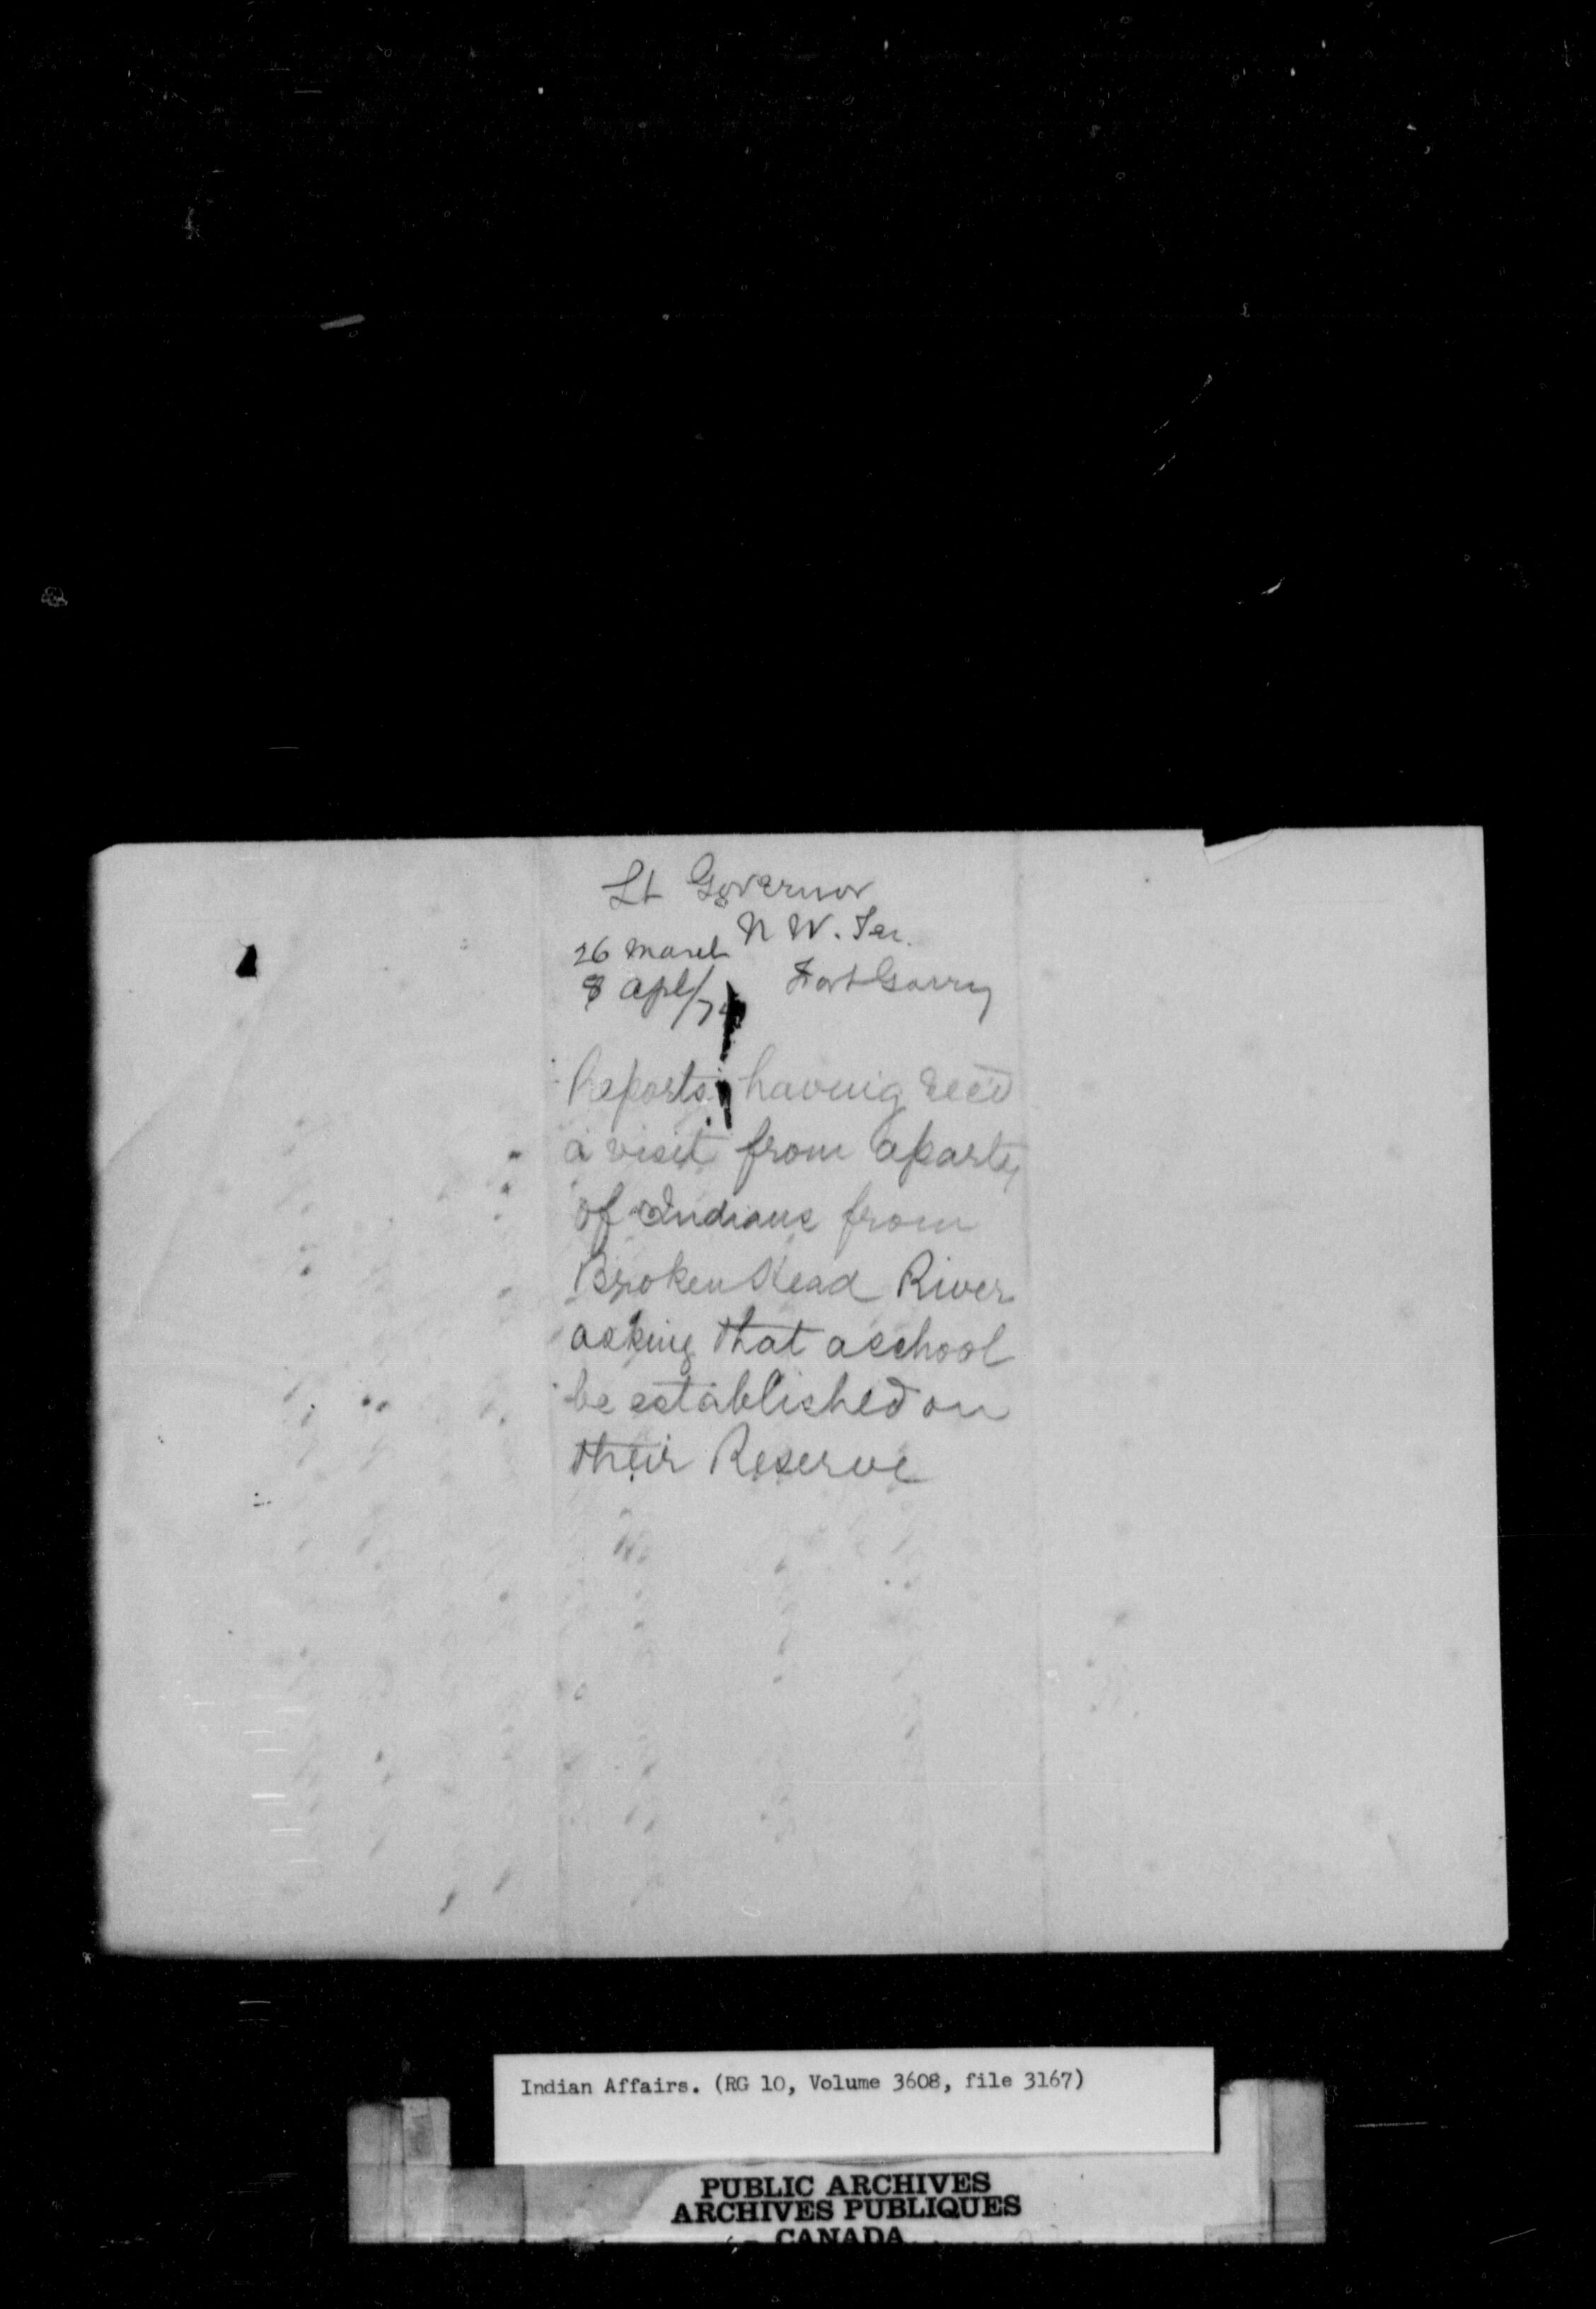 Lt Governor
N W. Ter.
26 March
8 Apl/74 Fort Garry
Reports having recd
a visit from a party
of Indians from
Broken Head River
asking that a school
be established on
their Reserve
Indian Affairs. (RG 10, Volume 3608, file 3167)
PUBLIC ARCHIVES
ARCHIVES PUBLIQUES
CANADA